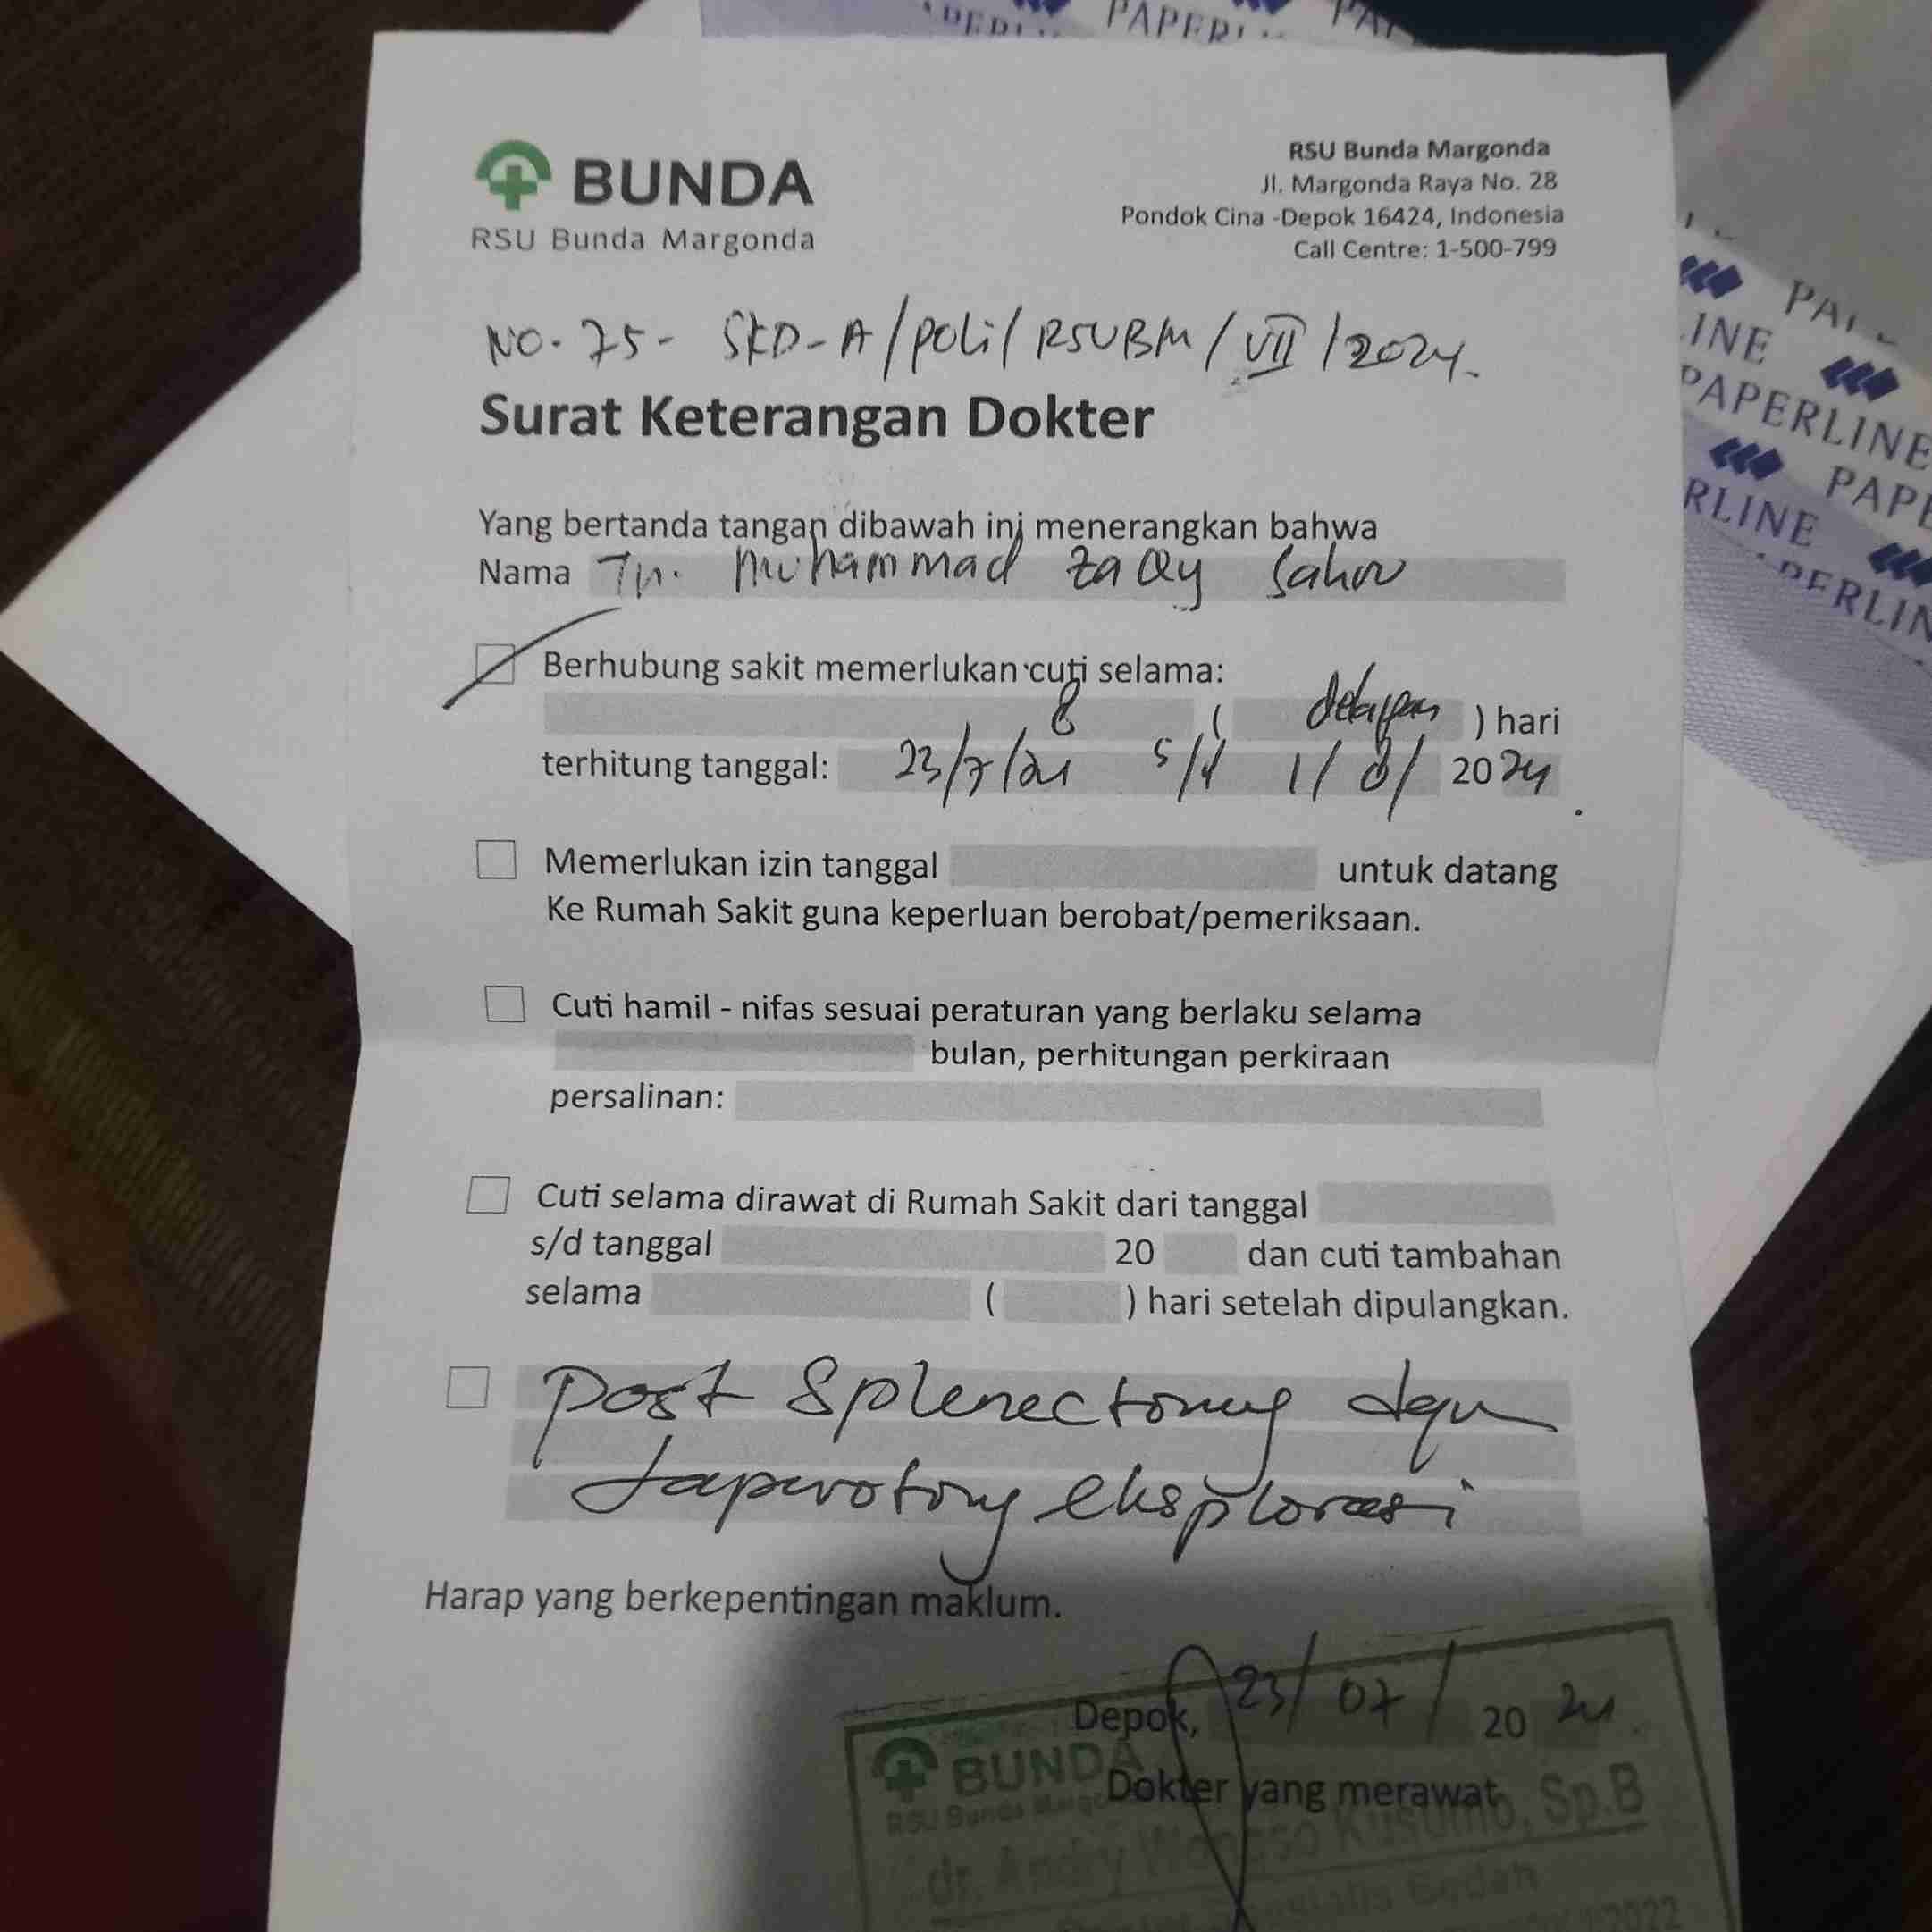 PAPERL
BUNDA
RSU Bunda Margonda
RSU Bunda Margonda
Jl. Margonda Raya No. 28
Pondok Cina -Depok 16424, Indonesia
Call Centre: 1-500-799
NO. 75- SKD-A/poli/RSUBM/VII/2024.
Surat Keterangan Dokter
Yang bertanda tangan dibawah ini menerangkan bahwa
Nama Tn. Muhammad Zaqy
Berhubung sakit memerlukan cuti selama:
8 ( delapan ) hari
terhitung tanggal: 23/7/24 s/d 1/8/2024.
Memerlukan izin tanggal untuk datang
Ke Rumah Sakit guna keperluan berobat/pemeriksaan.
Cuti hamil - nifas sesuai peraturan yang berlaku selama
bulan, perhitungan perkiraan
persalinan:
Cuti selama dirawat di Rumah Sakit dari tanggal
s/d tanggal 20 dan cuti tambahan
selama ( ) hari setelah dipulangkan.
Post Splenectomy dgn
Laparotomy eksplorasi
Harap yang berkepentingan maklum.
Depok, 23/07/2024
Dokter yang merawat
BUNDA
RSU Bunda Margonda
dr. Andry Kusumo, Sp.B
Bedah
2022
PAPERLINE
PAPERLINE